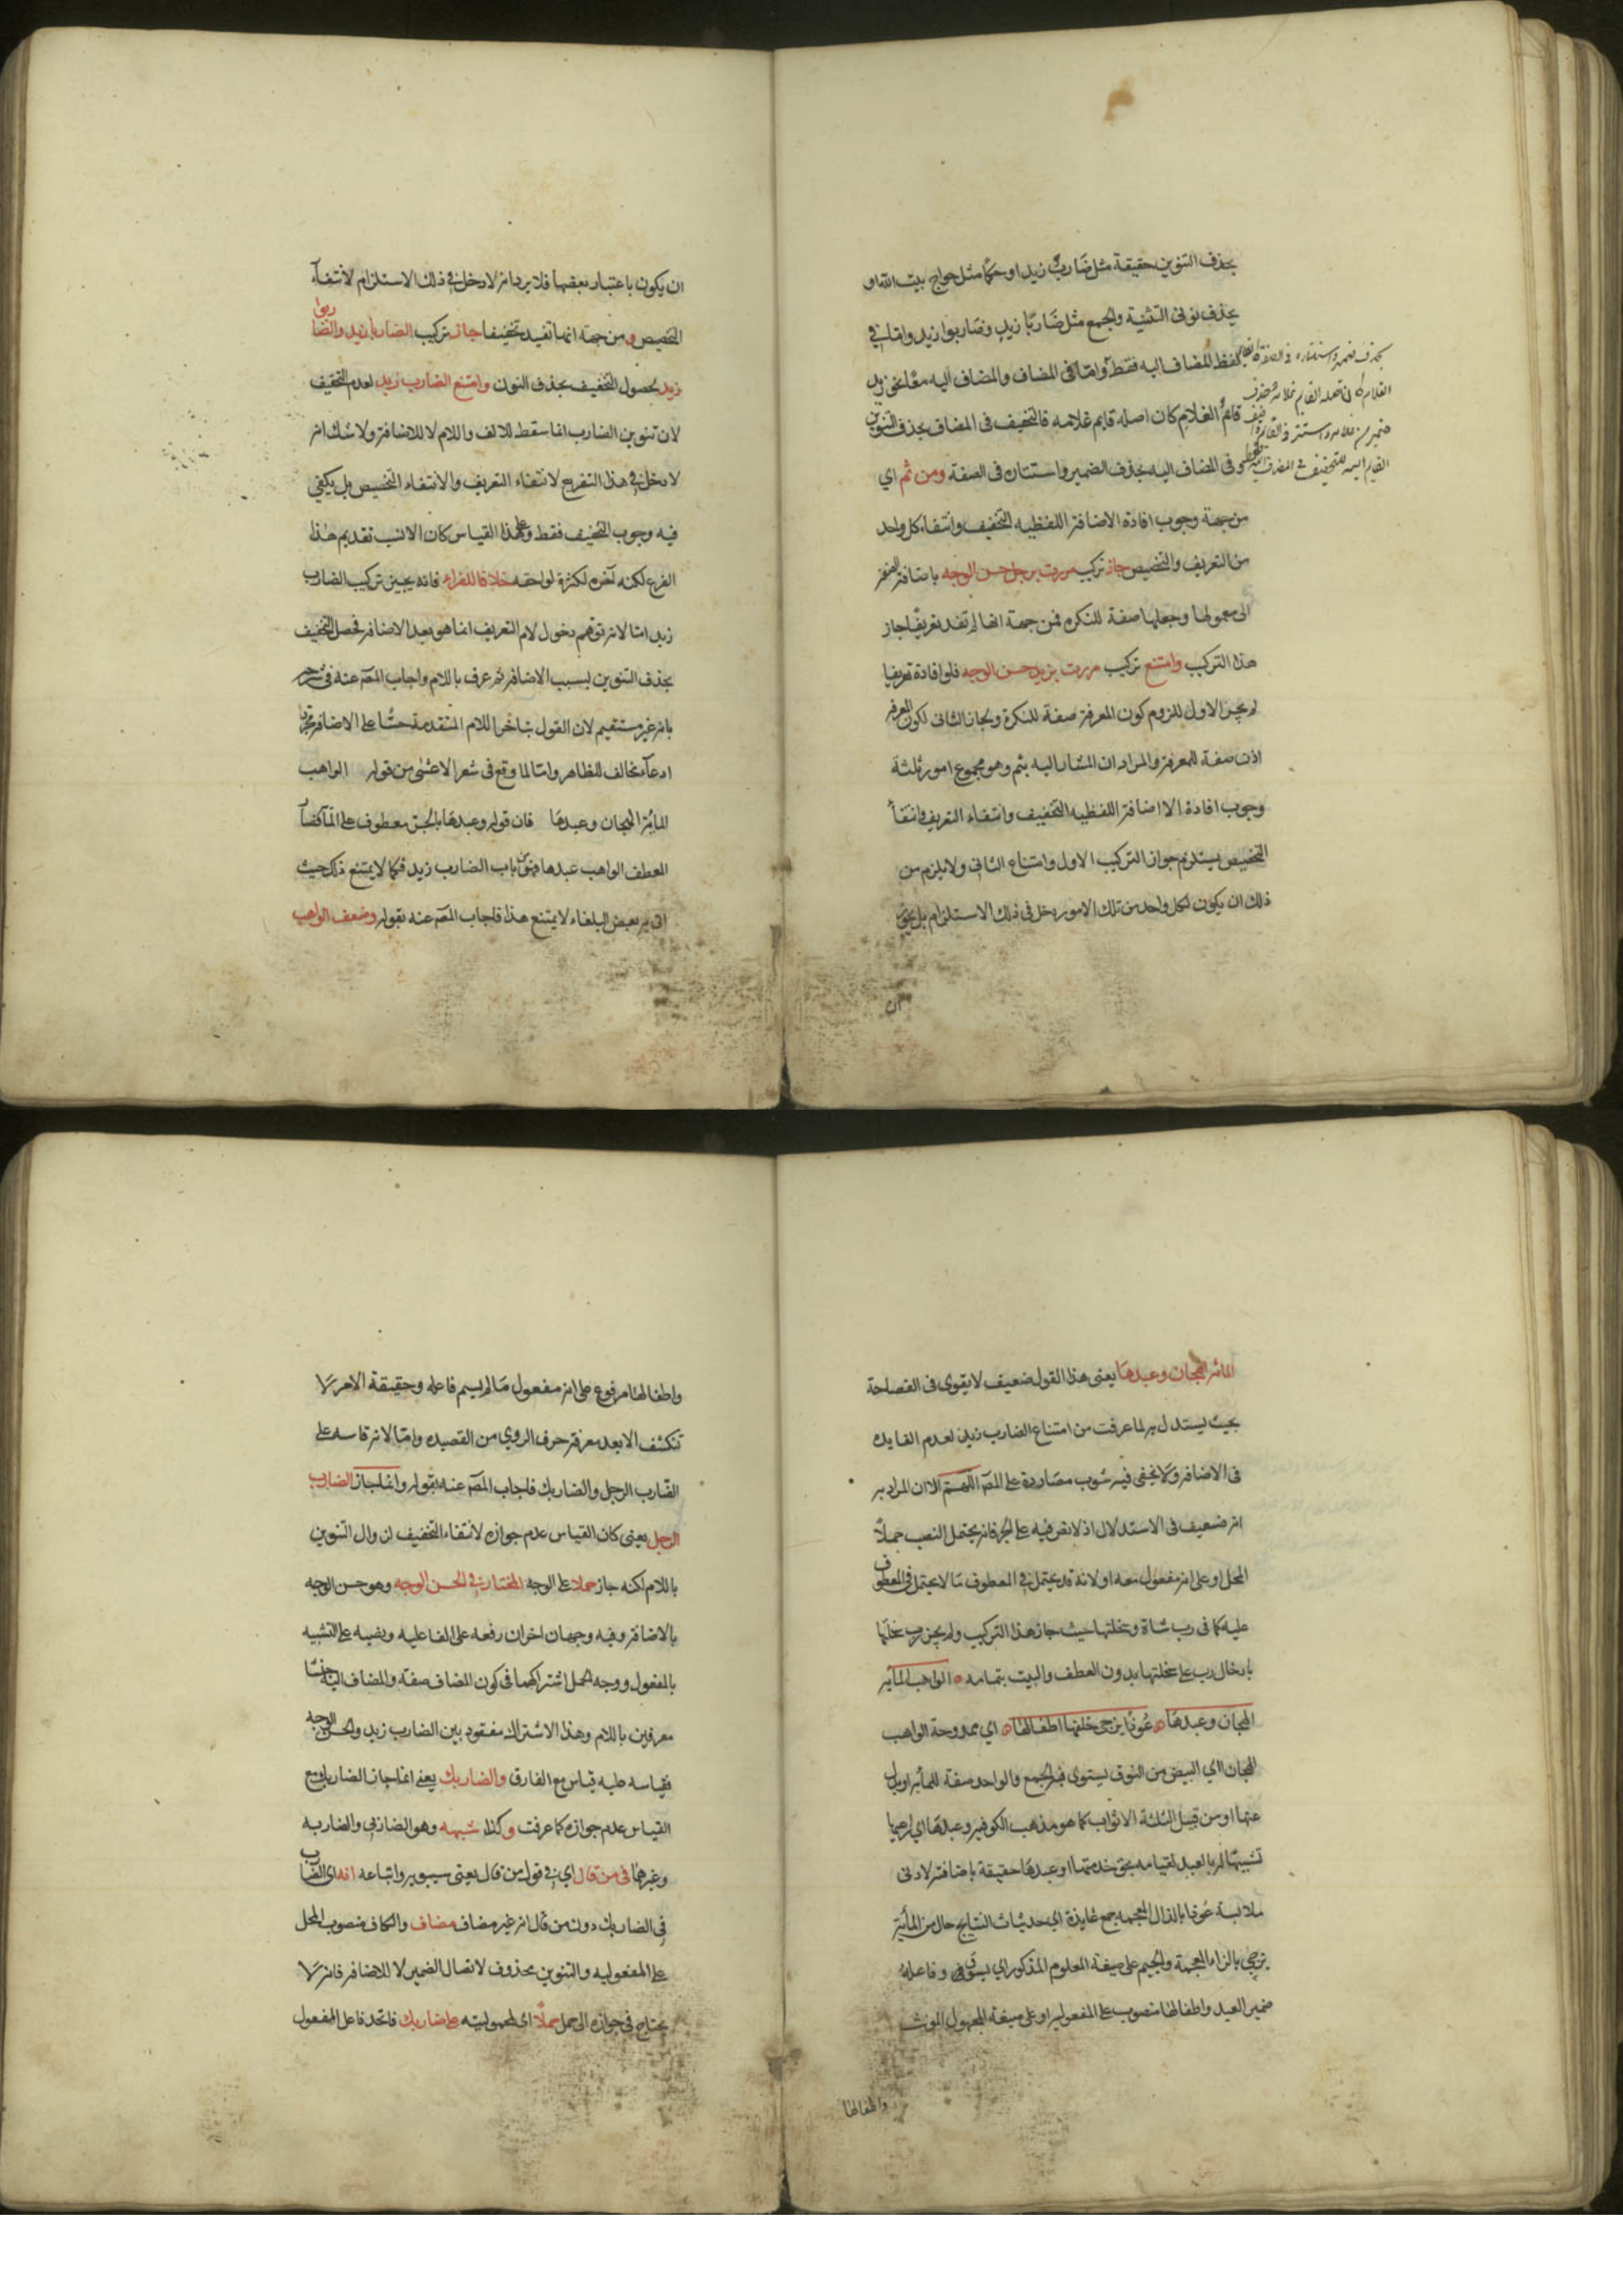 بحذف التنوين حقيقة مثل ضارب زيد او حكما مثل حواج بيت الله او
بحذف نونى التثنية والجمع مثل ضاربا زيد وضاربوا زيد واما في
لفظ المضاف اليه فقط واما فى المضاف والمضاف اليه معا نحو زيد
قايم الغلام كان اصله قايم غلامه فالتخفيف فى المضاف بحذف التنوين
وفى المضاف اليه بحذف الضمير واستتاره فى الصفة ومن ثم اي
من جهة وجوب افادة الاضافة اللفظيه التخفيف وانتفاء كل واحد
من التعريف والتخصيص جاز تركيب مررت برجل حسن الوجه باضافة الصفة
الى معمولها وجعلها صفة للنكره فمن جهة انها لم تفد تعريفا جاز
هذا التركيب وامتنع تركيب مررت بزيد حسن الوجه فلو افادة تعريفا
لم يجز الاول للزوم كون المعرفة صفة للنكرة ولجاز الثانى لكون المعرفة
اذن صفة للمعرفة والمراد ان المشار اليه بثم وهو مجموع امور ثلثة
وجوب افادة الااضافة اللفظيه التخفيف وانتفاء التعريف وانتفاء
التخصيص يستلزم جواز التركيب الاول وامتناع الثانى ولا يلزم من
ذلك ان يكون لكل واحد من تلك الامور دخل فى ذلك الاستلزام بل يجوز
ان
ان يكون باعتبار بعضها فلا يرد انه لا دخل في ذلك الاستلزام لانتفاء
التخصيص و من جهة انها تفيد تخفيفا جاز تركيب الضاربا زيد والضاربوا
زيد لحصول التخفيف بحذف النون وامتنع الضارب زيد لعدم التخفيف
لان تنوين الضارب انما سقط للالف واللام لا للاضافة ولا شك انه
لا دخل في هذا التفريع لانتفاء التعريف والانتفاء التخصيص بل يكفي
فيه وجوب التخفيف فقط وعلى هذا القياس كان الانسب تقديم هذا
الفرع لكنه اخره لكثرة لواحقه خلافا للفراء فانه يجيز تركيب الضارب
زيد اما لانه توهم دخول لام التعريف انما هو بعد الاضافة فحصل التخفيف
بحذف التنوين بسبب الاضافة ثم عرف باللام واجاب المص عنه فى شرحه
بانه غير مستقيم لان القول بتاخر اللام المتقدمة حسا على الاضافة مجرد
ادعاء مخالف للظاهر واما لما وقع فى شعر الاعشى من قوله الواهب
المائة الهجان وعبدها فان قوله وعبدها بالجر معطوف على المائة فصار
العطف الواهب عبدها فهو من باب الضارب زيد فكما لا يمتنع ذلك حيث
اتى به بعض البلغاء لا يمتنع هذا فاجاب المص عنه بقوله وضعف الواهب
المائة الهجان وعبدها يعنى هذا القول ضعيف لا يقوى فى الفصاحة
بحيث يستدل به لما عرفت من امتناع الضارب زيد لعدم الفايده
فى الاضافة ولا يخفى فيه شوب مصادرة على المص اللهم الا ان المراد به
انه ضعيف فى الاستدلال اذ لا نص فيه على الجر فانه يحتمل النصب حملا
المحل او على انه مفعول معه او لانه قد يحتمل في المعطوف ما لا يحتمل فى المعطوف
عليه كما فى رب شاة وسخلتها حيث جاز هذا التركيب ولم يجز رب سخلتها
بادخال رب على سخلتها بدون العطف والبيت بتمامه الواهب المائة
الهجان وعبدها عوذا يزجى خلفها اطفالها اي ممدوحة الواهب
الهجان ااي البيض من النوق يستوى فيه الجمع والواحد صفة للمائة او بدل
عنها او من قبيل الثلثة الاثواب كما هو مذهب الكوفيه وعبدها اي راعيها
تشبيها له بالعبد لقيامه بحق خدمتها او عبدها حقيقة باضافة لادنى
ملابسة عوذا بالذال المعجمه جمع عايذة اي حديثات النتايج حال من المائة
يزجى بالزاء المعجمة والجيم على صيغة المعلوم المذكور اي يسوق وفاعله
ضمير العبد واطفالها منصوب على المفعوليه او على صيغة المجهول المونث
واطفالها
واطفالها مرفوع على انه مفعول ما لم يسم فاعله وحقيقة الامر لا
تنكشف الا بعد معرفة حرف الروي من القصيده واما لانه قاسه على
الضارب الرجل والضاربك فاجاب المص عنه بقوله وانما جاز الضارب
الرجل يعنى كان القياس عدم جوازه لانتفاء التخفيف لزوال التنوين
باللام لكنه جاز حملا على الوجه المختار في الحسن الوجه وهو حسن الوجه
بالاضافة وفيه وجهان اخران رفعه على الفاعليه ونصبه على التشبيه
بالمفعول ووجه الحمل اشتراكهما فى كون المضاف صفة والمضاف اليه جنسا
معرفين باللام وهذا الاشتراك مفقود بين الضارب زيد والحسن الوجه
فقياسه عليه قياس مع الفارق والضاربك يعني انما جاز الضاربك مع
القياس عدم جوازه كما عرفت وكذا شبهه وهو الضاربي والضاربه
وغيرهما فى من قال اي في قول من قال يعنى سيبويه واتباعه انه اى الضارب
في الضاربك دون من قال انه غير مضاف مضاف والكاف منصوب المحل
على المفعوليه والتنوين محذوف لاتصال الضمير لا للاضافة فانه لا
يحتاج فى جوازه الى حمل حملا اى لمحموليته على ضاربك فاتحد فاعل المفعول